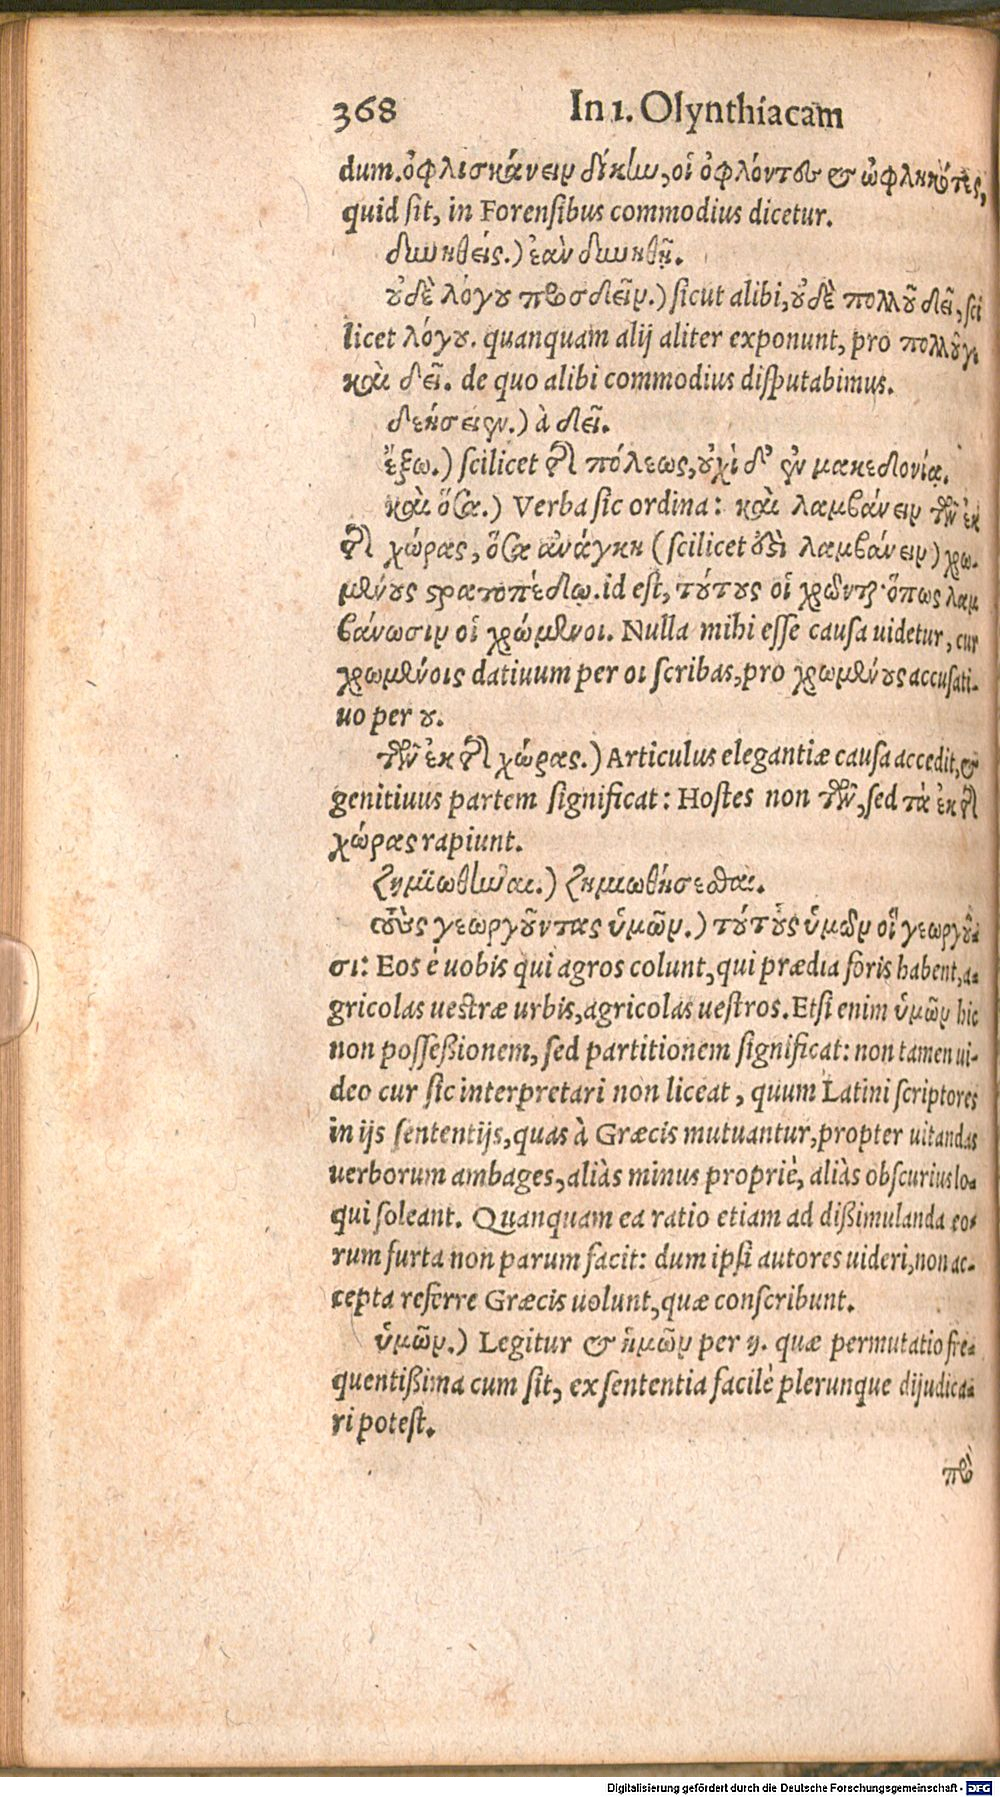 368 In 1. Olynthiacam
dum. ὀφλισκάνειν δίκην, οἱ ὀφλόντες & ὠφληκότες,
quid sit, in Forensibus commodius dicetur.
διωχθείς.) ἐὰν διωχθῇ.
οὐδὲ λόγου προσδεῖν.) sicut alibi, οὐδὲ πολλοῦ δεῖ, sci
licet λόγου. quanquam alij aliter exponunt, pro πολλοῦ γε
καὶ δεῖ. de quo alibi commodius disputabimus.
δεήσειεν.) à δεῖ.
ἔξω.) scilicet τῆς πόλεως, οὐχὶ δ' ἐν μακεδονίᾳ.
καὶ ὅσα.) Verba sic ordina: καὶ λαμβάνειν τῶν ἐκ
τῆς χώρας, ὅσα ἀνάγκη (scilicet ὅτι λαμβάνειν) χρω-
μένους στρατοπέδῳ. id est, τούτους οἱ χρῶνται· ὅπως λαμ
βάνωσιν οἱ χρώμενοι. Nulla mihi esse causa uidetur, cur
χρωμένοις datiuum per οι scribas, pro χρωμένους accusati-
uo per ȣ.
τῶν ἐκ τῆς χώρας.) Articulus elegantiæ causa accedit, &
genitiuus partem significat: Hostes non τῶν, sed τὰ ἐκ τῆς
χώρας rapiunt.
ζημιωθῆναι.) ζημιωθήσεσθαι.
τοὺς γεωργοῦντας ὑμῶν.) τούτους ὑμῶν οἳ γεωργοῦ-
σι: Eos è uobis qui agros colunt, qui prædia foris habent, a-
gricolas uestræ urbis, agricolas uestros. Etsi enim ὑμῶν hic
non posseßionem, sed partitionem significat: non tamen ui-
deo cur sic interpretari non liceat, quum Latini scriptores
in ijs sententijs, quas à Græcis mutuantur, propter uitandas
uerborum ambages, aliàs minus propriè, aliàs obscurius lo-
qui soleant. Quanquam ea ratio etiam ad dißimulanda eo-
rum furta non parum facit: dum ipsi autores uideri, non ac-
cepta referre Græcis uolunt, quæ conscribunt.
ὑμῶν.) Legitur & ἡμῶν per η. quæ permutatio fre-
quentißima cum sit, ex sententia facilè plerunque dijudica-
ri potest.
πρὸ
Digitalisierung gefördert durch die Deutsche Forschungsgemeinschaft - DFG